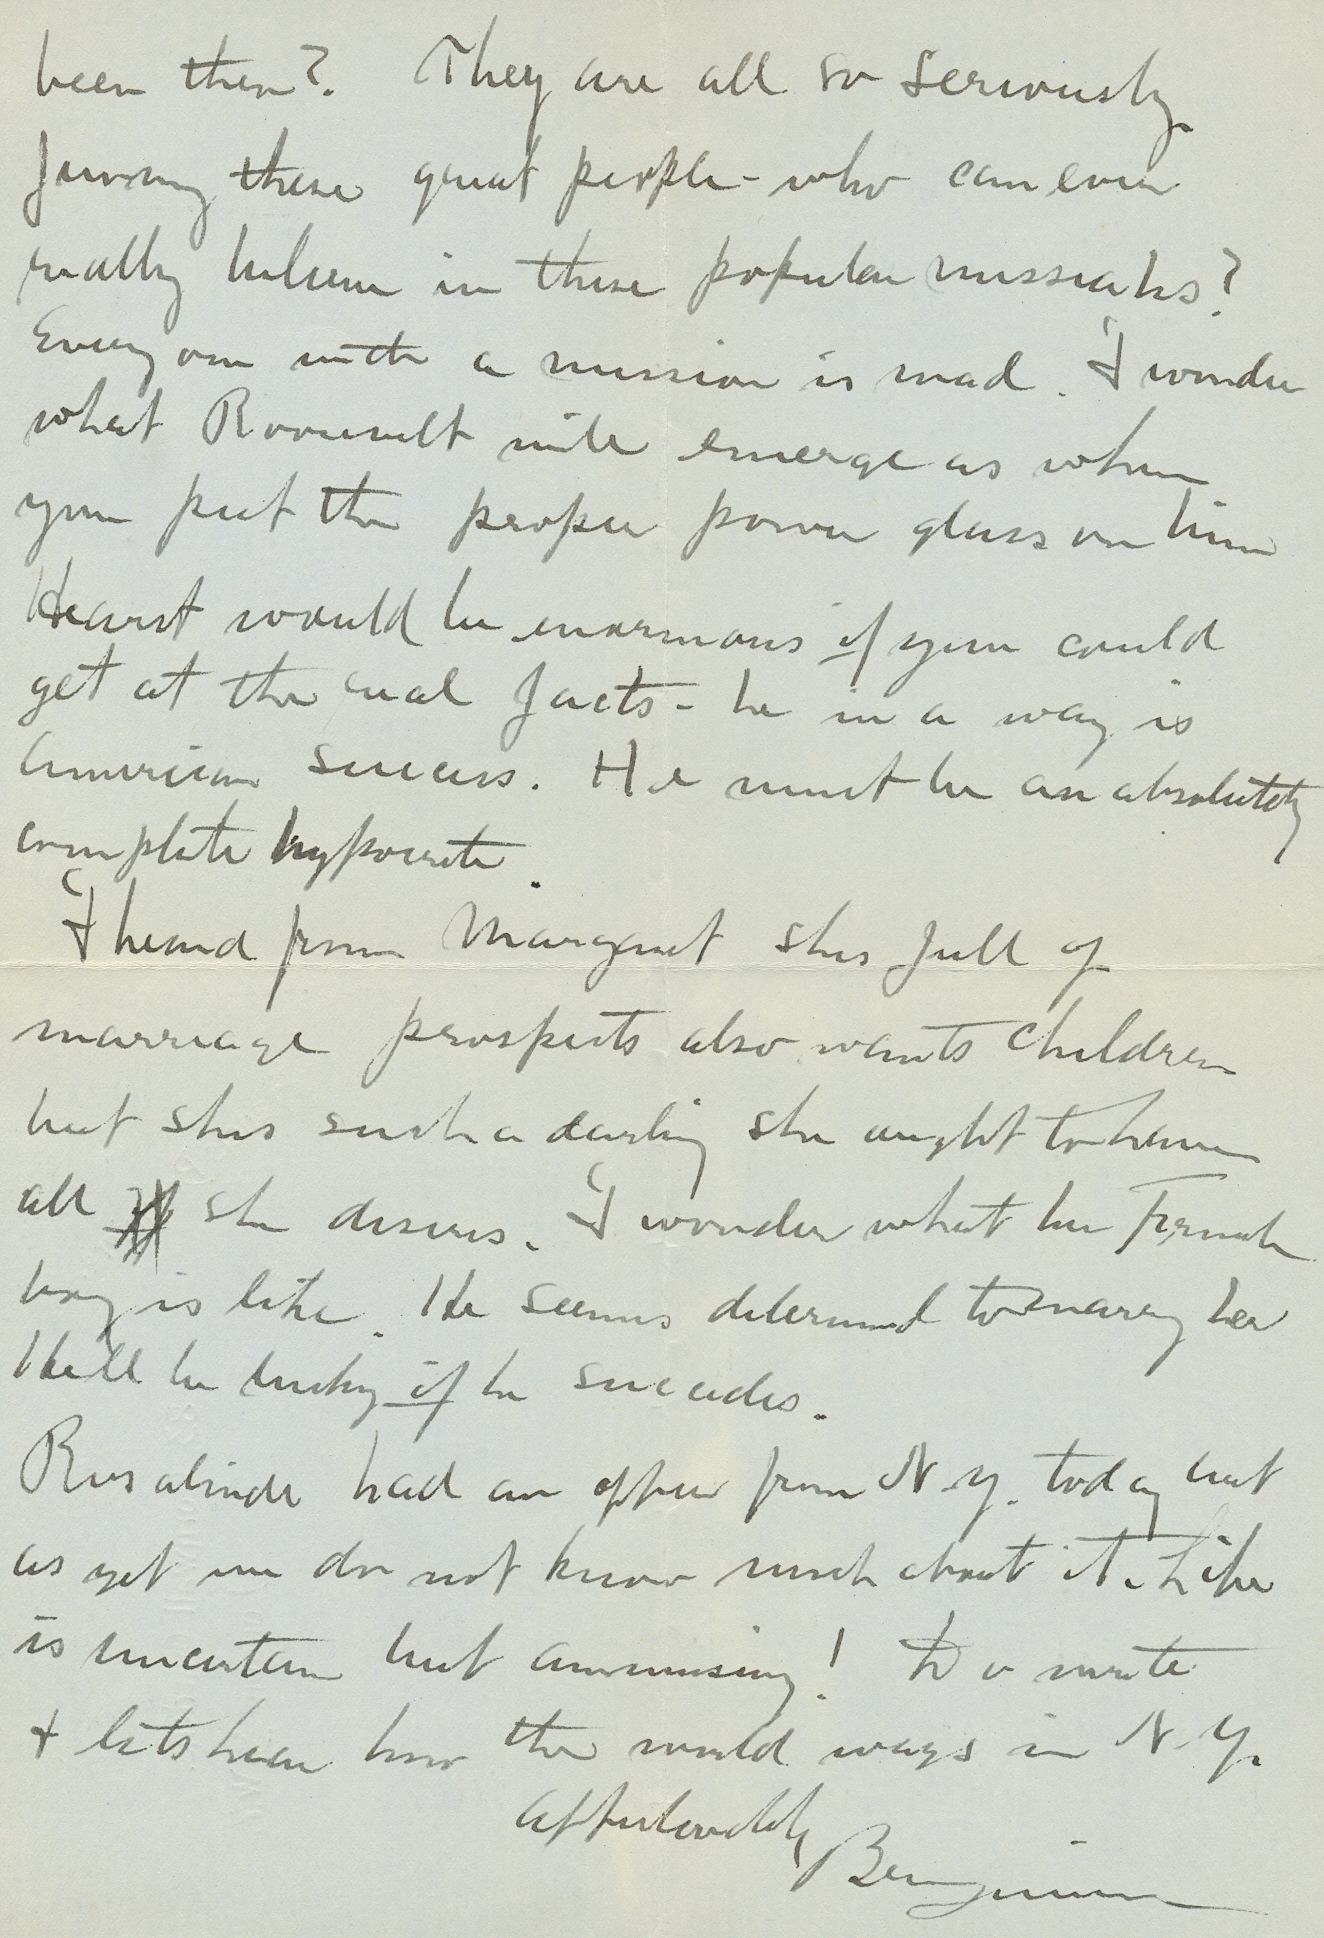 been there? They are all so seriously
funny these great people - who can ever
really believe in these popular messiahs?
Everyone with a mission is mad. I wonder
what Roosevelt will emerge as when
you put the proper power glass on him
Hearst would be enormous if you could
get at the real facts - he in a way is
American success. He must be an absolutely
complete hypocrite.
I heard from Margaret shes full of
marriage prospects also wants children
but shes such a darling she aught to have
all she desires. I wonder what her French
boy is like. He seems determined to marry her
Hell be lucky if he succeedes.
Rosalinde had an offer from N.Y. today but
as yet we do not know much about it. Life
is uncertain but ammusing! Do write
& lets hear how the world wags in N.Y.
Affectionately
Benjamin